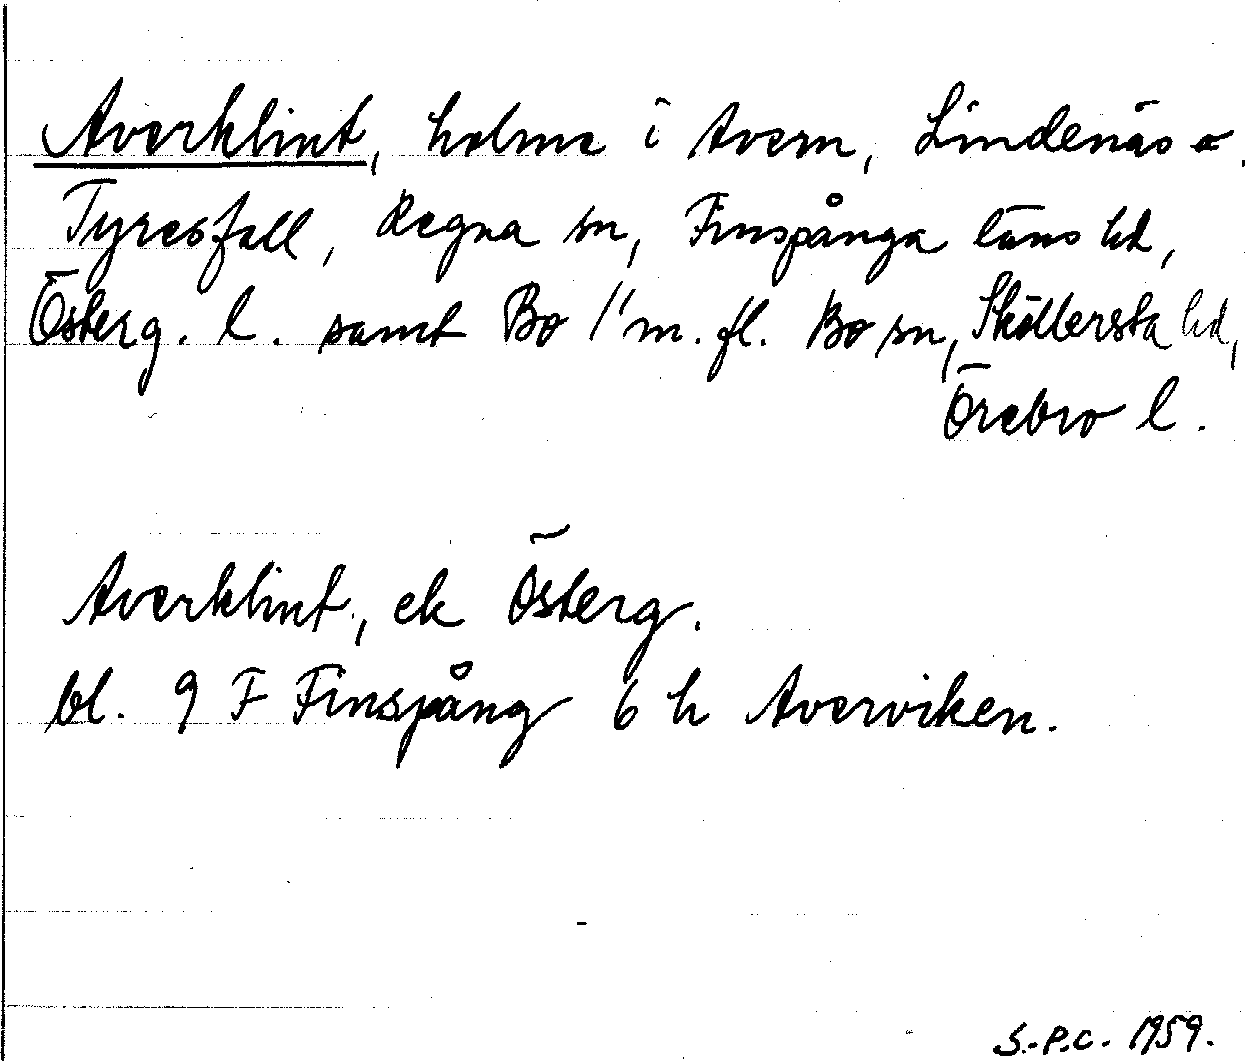 Averklint, holme i Avern, Lindenäs o.
Tyresfall, Regna sn, Finspånga läns hd,
Österg. l. samt Bo 1/1 m. fl. Bo sn, Sköllersta hd,
Örebro l.
Averklint, ek Österg.
bl. 9 F Finspång 6 h Averviken.
S.-P.C. 1959.